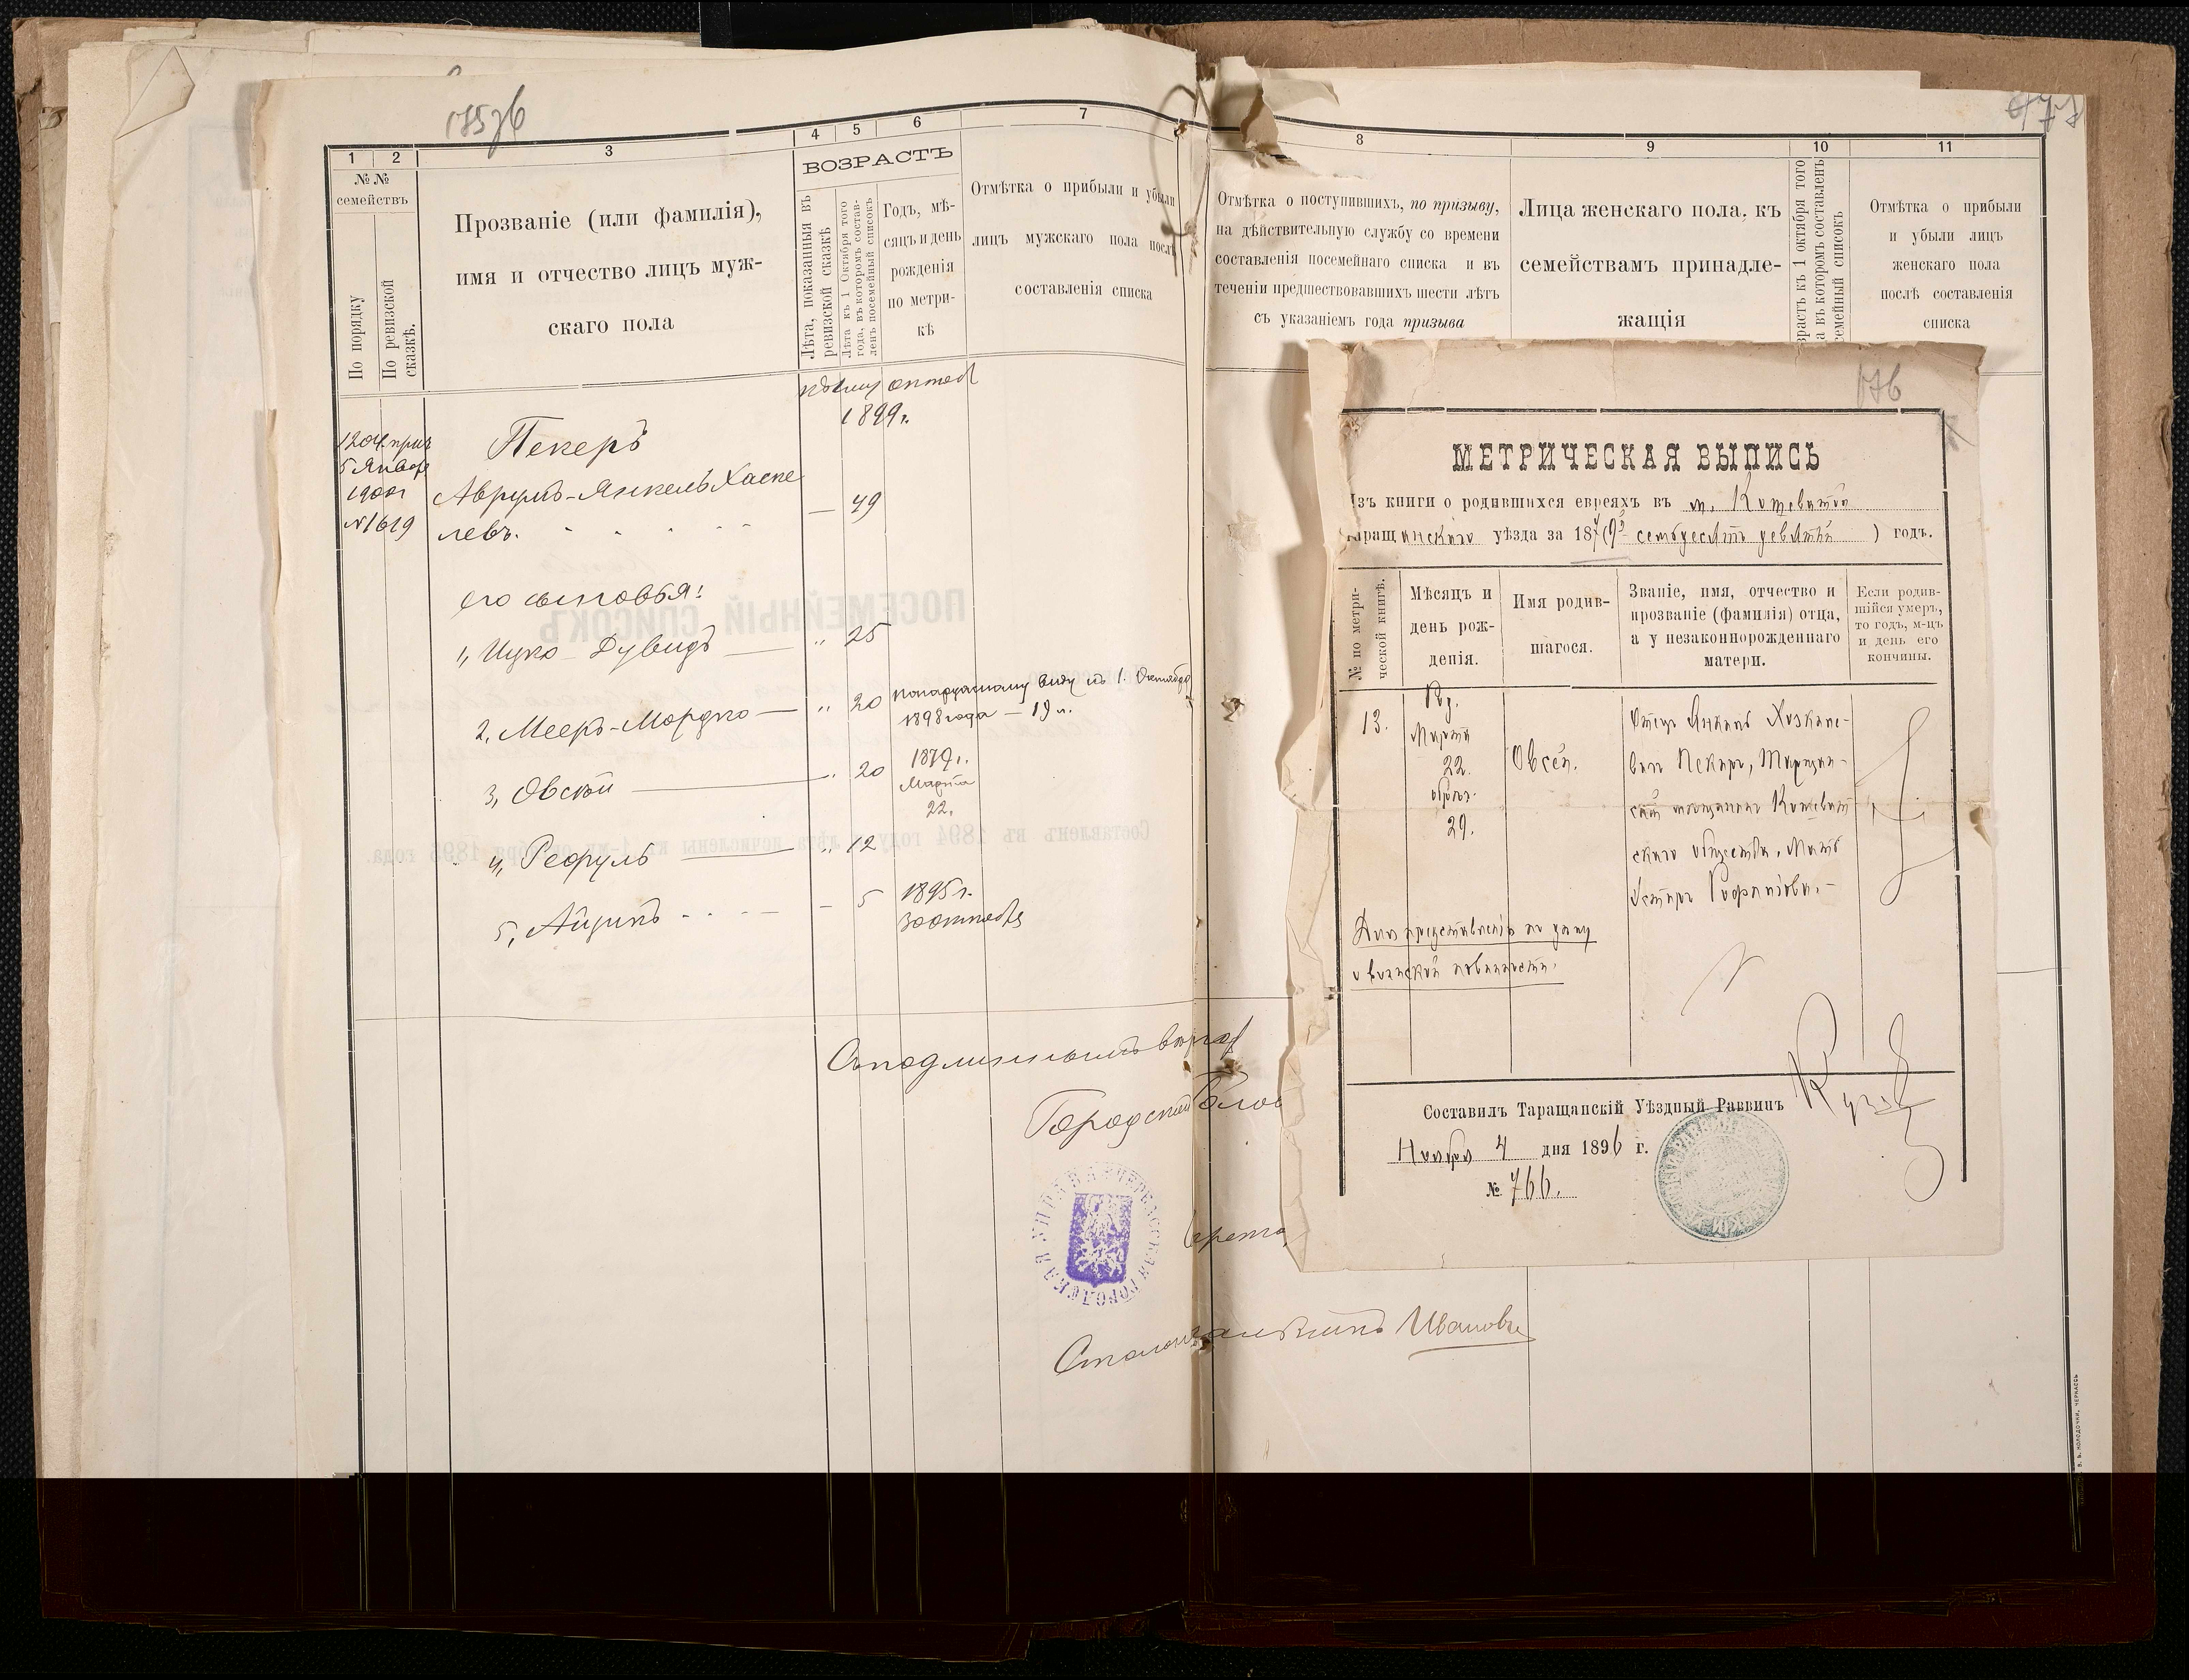 1
2
3
4
5
6
7
№№
семействъ
По порядку
По ревизской сказкѣ.
Прозваніе (или фамилія),
имя и отчество лицъ муж-
скаго пола
ВОЗРАСТЪ
Лѣта, показанныя въ
ревизской сказкѣ
Лѣта къ 1 Октября того
года, въ которомъ состав-
ленъ посемейный списокъ
Годъ, мѣ-
сяцъ и день
рожденія
по метри-
кѣ
Отмѣтка о прибыли и убыли
лицъ мужскаго пола послѣ
составленія списка
1899 г.
1204
5 Января
1900 г
№ 1619
Пекеръ
Аврумъ-Янкель Хаске
левъ. — 49
его сыновья:
1, Ицко-Дувидъ — " 25
2, Мееръ-Мордко — " 20 по наружному виду къ 1. Октября
1898 года — 19 л.
3, Овсѣй — 20 1879 г.
Марта
22.
4, Рефуль — " 12
5, Айзикъ — 5 1895 г.
30 октября
Съ подлиннымъ вѣрно
Городской Голов
ГОРОДСКАЯ УПРАВА
Столоначальникъ Ивановъ
8
9
10
11
Отмѣтка о поступившихъ, по призыву,
на дѣйствительную службу со времени
составленія посемейнаго списка и въ
теченіи предшествовавшихъ шести лѣтъ
съ указаніемъ года призыва
Лица женскаго пола, къ
семействамъ принадле-
жащія
зрастъ къ 1 октября того
а въ которомъ составленъ
семейный списокъ
Отмѣтка о прибыли
и убыли лицъ
женскаго пола
послѣ составленія
списка
176
МЕТРИЧЕСКАЯ ВЫПИСЬ
Изъ книги о родившихся евреяхъ въ м. Кошеватой
Таращанскаго уѣзда за 1879 (семьдесятъ девятый) годъ.
№ по метри-
ческой книгѣ.
Мѣсяцъ и
день рож-
денія.
Имя родив-
шагося.
Званіе, имя, отчество и
прозваніе (фамилія) отца,
а у незаконнорожденнаго
матери.
Если родив-
шійся умеръ,
то годъ, м-цъ
и день его
кончины.
13.
Рд.
Марта
22.
обрѣз.
29.
Овсей.
Отецъ Янкель Хозкеле-
вичъ Пекеръ, Таращан-
скій мѣщанинъ Кошеват-
скаго общества, Мать
Эстеръ
Для представленія по дѣлу
о воинской повинности.
Составилъ Таращанскій Уѣздный Раввинъ
Ноября 4 дня 1896 г.
№ 766.